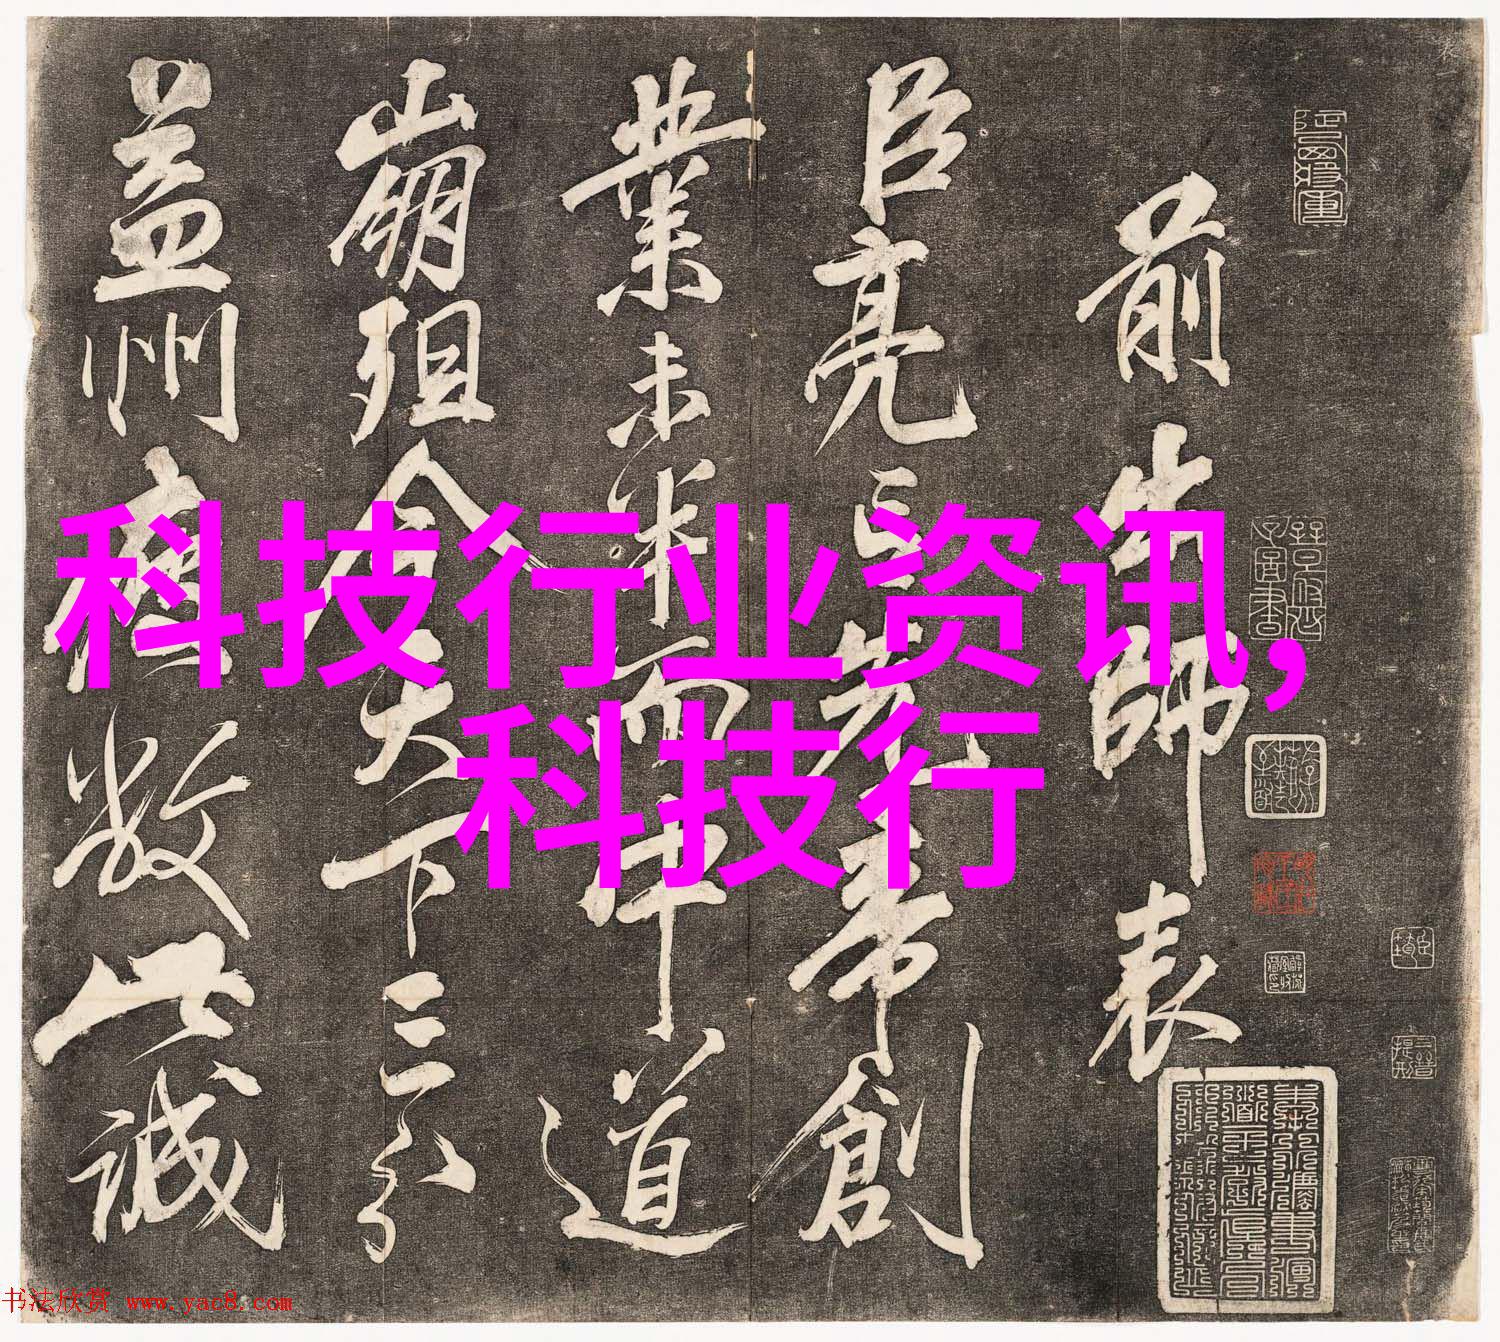 前出師表
臣亮言先帝創
業未半而中道
崩殂今天下三分
益州疲敝此誠
科技行业资讯,
科技行
书法欣赏 www.yac8.com